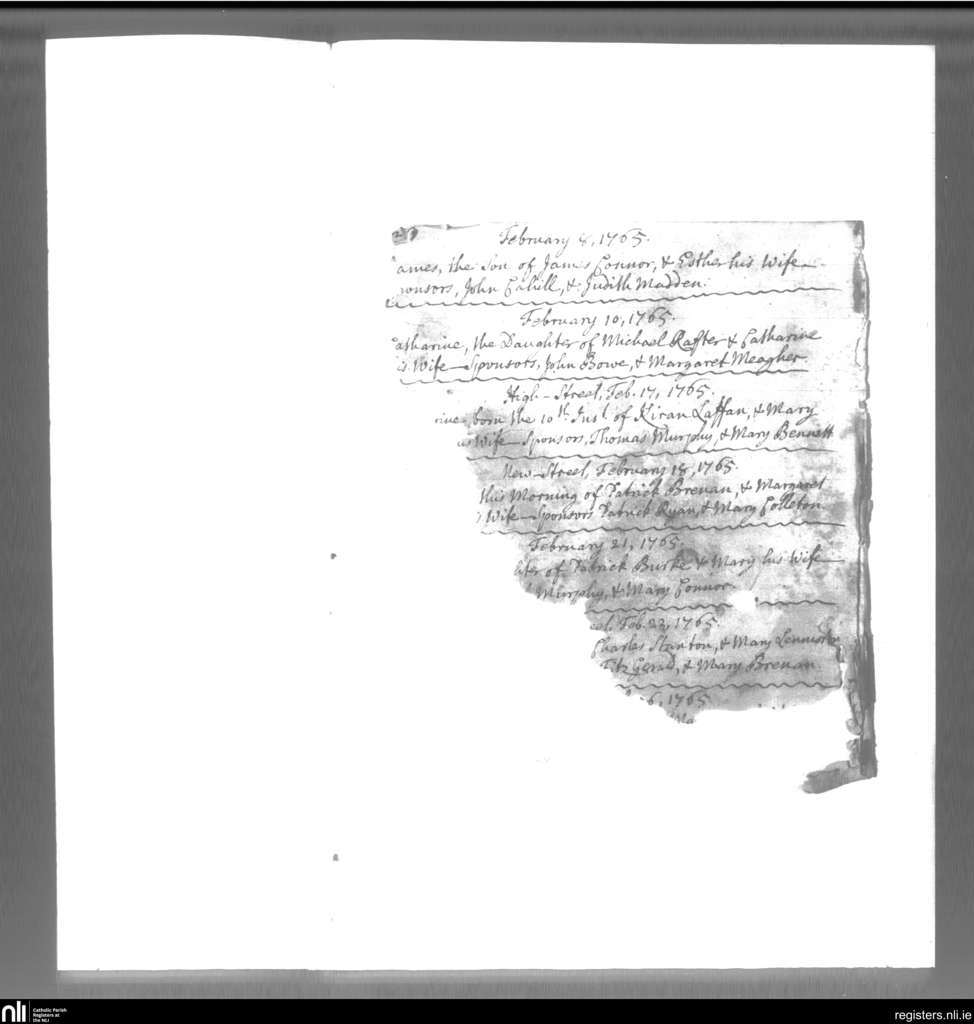 February 8, 1765.
ames, the Son of James Connor, & Esther his Wife—
ponsors, John Cahill, & Judith Madden.
February 10, 1765.
atharine, the Daughter of Michael Rafter & Catharine
is Wife—Sponsors, John Bowe, & Margaret Meagher
High-Street, Feb. 17, 1765.
rine, born the 10th Inst. of Kiran Laffan, & Mary
is Wife—Sponsors, Thomas Murphy, & Mary Bennett
New-Street, February 18, 1765.
this Morning of Patrick Brenan, & Margaret
Wife—Sponsors Patrick Ryan, & Mary Colleton
February 21, 1765.
hter of Patrick Burke & Mary his Wife—
Murphy, & Mary Connor.
eet, Feb. 23, 1765.
Charles Stanton, & Mary
Fitz Gerald, & Mary Brenan
6, 1765
Ma
nli
Catholic Parish
Registers at
the NLI
registers.nli.ie